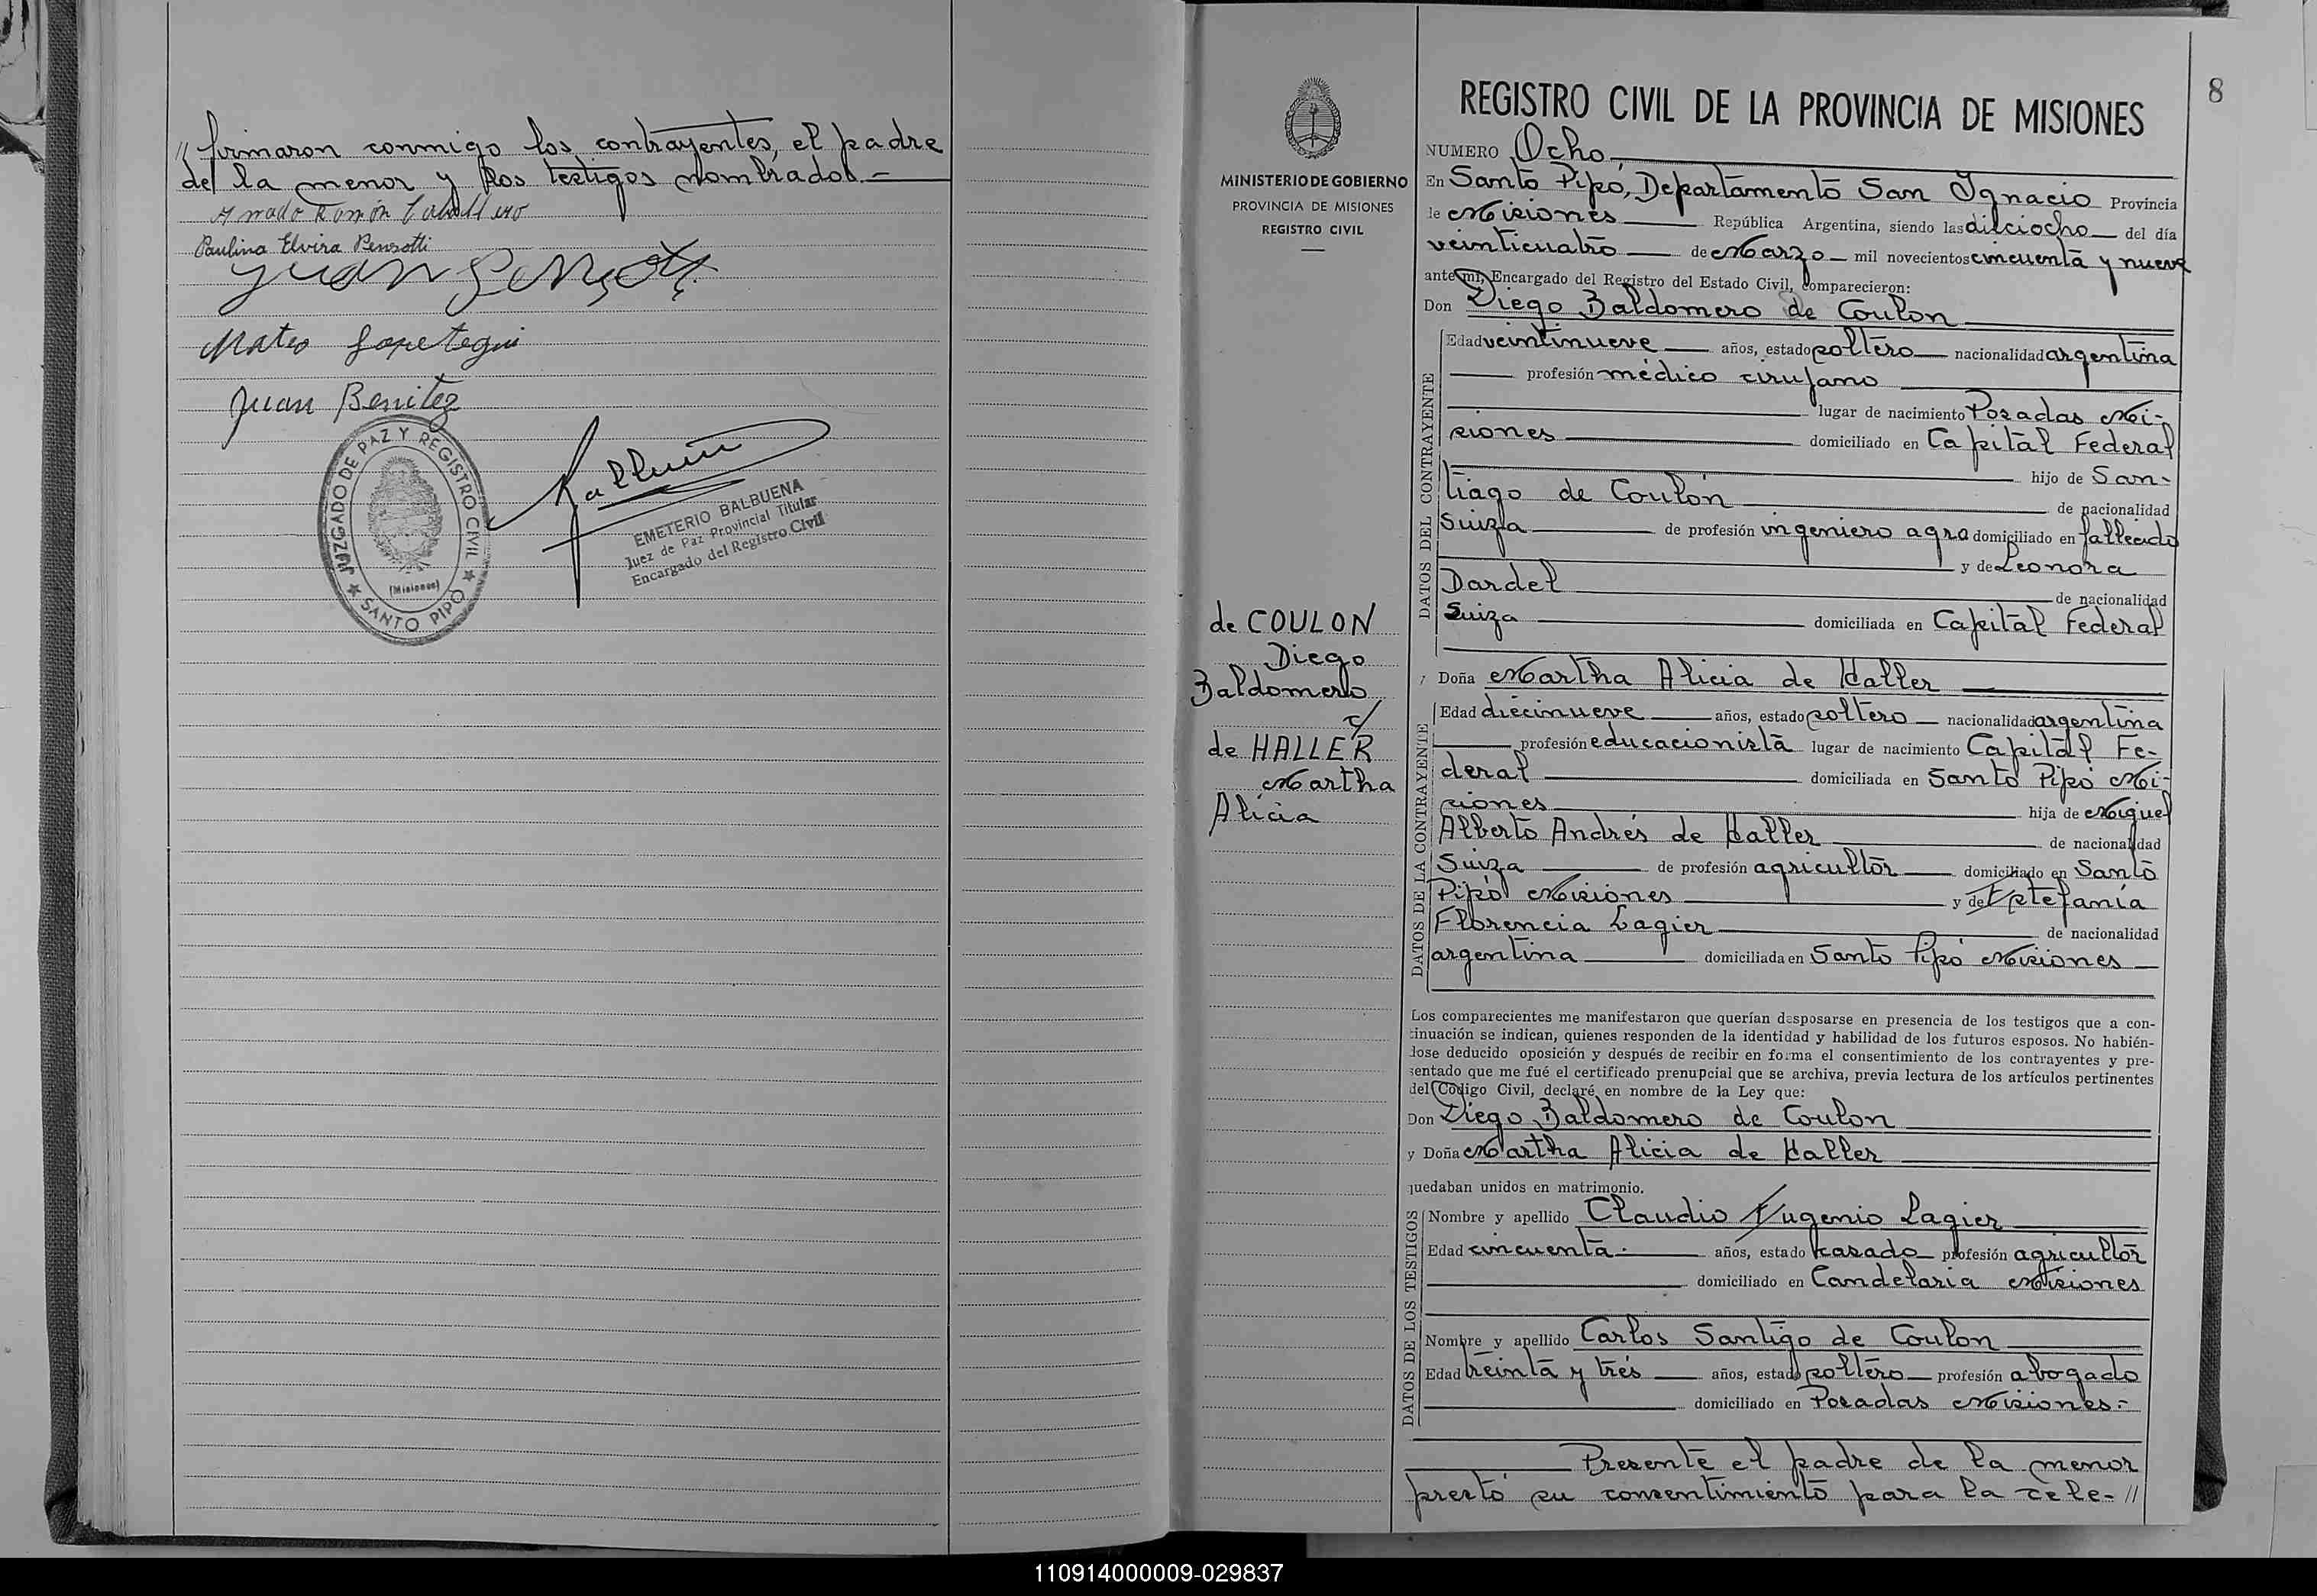 // firmaron conmigo los contrayentes, el padre
de la menor y los testigos nombrados.—
Amado Ramón Caballero
Paulina Elvira Pensotti
Juan Pensotti
Mateo Gopetegui
Juan Benitez
JUZGADO DE PAZ Y REGISTRO CIVIL
(Misiones)
★ SANTO PIPO ★
EMETERIO BALBUENA
Juez de Paz Provincial Titular
Encargado del Registro Civil
8
MINISTERIO DE GOBIERNO
PROVINCIA DE MISIONES
REGISTRO CIVIL
de COULON
Diego
Baldomero
c/
de HALLER
Martha
Alicia
REGISTRO CIVIL DE LA PROVINCIA DE MISIONES
NUMERO Ocho
En Santo Pipó, Departamento San Ignacio Provincia
de Misiones República Argentina, siendo las dieciocho del día
veinticuatro de Marzo mil novecientos cincuenta y nueve
ante mí, Encargado del Registro del Estado Civil, comparecieron:
Don Diego Baldomero de Coulon
DATOS DEL CONTRAYENTE
Edad veintinueve años, estado soltero nacionalidad argentina
profesión médico cirujano
lugar de nacimiento Posadas Mi-
siones domiciliado en Capital Federal
hijo de San-
tiago de Coulon de nacionalidad
Suiza de profesión ingeniero agro domiciliado en fallecido
y de Leonora
Dardel de nacionalidad
Suiza domiciliada en Capital Federal
y Doña Martha Alicia de Haller
DATOS DE LA CONTRAYENTE
Edad diecinueve años, estado soltero nacionalidad argentina
profesión educacionista lugar de nacimiento Capital Fe-
deral domiciliada en Santo Pipó Mi-
siones hija de Miguel
Alberto Andrés de Haller de nacionalidad
Suiza de profesión agricultor domiciliado en Santo
Pipó Misiones y de Estefanía
Florencia Lagier de nacionalidad
argentina domiciliada en Santo Pipó Misiones
Los comparecientes me manifestaron que querían desposarse en presencia de los testigos que a con-
tinuación se indican, quienes responden de la identidad y habilidad de los futuros esposos. No habién-
dose deducido oposición y después de recibir en forma el consentimiento de los contrayentes y pre-
sentado que me fué el certificado prenupcial que se archiva, previa lectura de los artículos pertinentes
del Código Civil, declaré en nombre de la Ley que:
Don Diego Baldomero de Coulon
y Doña Martha Alicia de Haller
quedaban unidos en matrimonio.
DATOS DE LOS TESTIGOS
Nombre y apellido Claudio Eugenio Lagier
Edad cincuenta años, estado casado profesión agricultor
domiciliado en Candelaria Misiones
Nombre y apellido Carlos Santigo de Coulon
Edad treinta y trés años, estado soltero profesión abogado
domiciliado en Posadas Misiones.-
Presente el padre de la menor
prestó su consentimiento para la cele- //
110914000009-029837